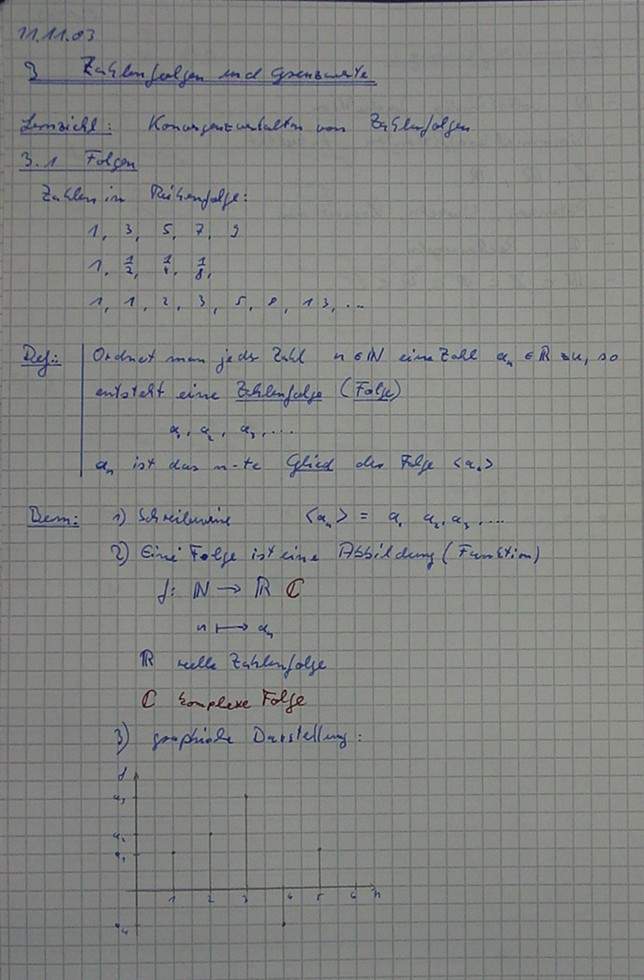 11.11.03
3 Zahlenfolgen und Grenzwerte
Lernziel: Konvergenzverhalten von Zahlenfolgen
3.1 Folgen
Zahlen in Reihenfolge:
1, 3, 5, 7, 9
1, 1/2, 1/4, 1/8,
1, 1, 2, 3, 5, 8, 13, ...
Def.: Ordnet man jeder Zahl n ∈ ℕ eine Zahl aₙ ∈ ℝ zu, so
entsteht eine Zahlenfolge (Folge)
a₁, a₂, a₃, ...
aₙ ist das n-te Glied der Folge <aₙ>
Bem: 1) Schreibweise <aₙ> = a₁ a₂, a₃, ...
2) Eine Folge ist eine Abbildung (Funktion)
f: ℕ → ℝ ℂ
n ↦ aₙ
ℝ reelle Zahlenfolge
ℂ komplexe Folge
3) graphische Darstellung:
f
a₃
a₂
a₁
1 2 3 4 5 6 n
a₄